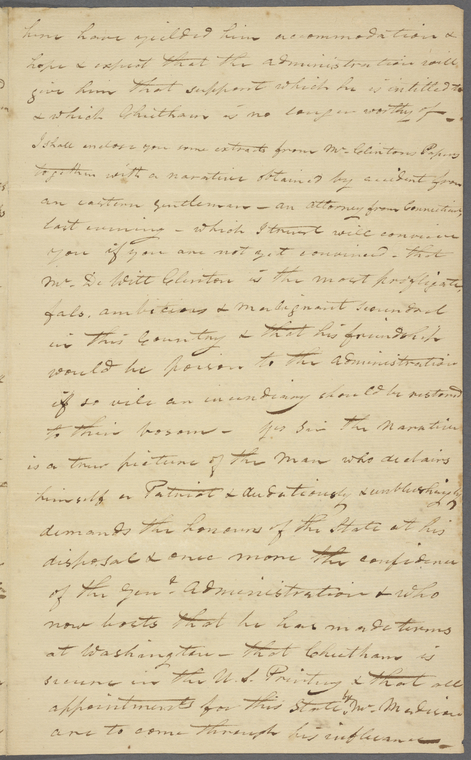 him have yielded him accommodation &
hope & expect that the administration will
give him that support which he is intitled to
& which Cheetham is no longer worthy of
I shall enclose you some extracts from Mr Clintons Papers
together with a narative obtained by accident from
an eastern gentleman - an attorney from Connecticut
last evening - which I trust will convince
you if you are not yet convinced - that
Mr De Witt Clinton is the most profligate
fals, ambitious & malignant scoundrel
in this Country & that his friendship
would be poison to the administration
if so vile an incendiary should be restored
to their bosom - Yes Sir the Narative
is a true picture of the man who declairs
himself a Patriot & audatiously & unblushingly
demands the honours of the State at his
disposal & once more the confidence
of the Genl. Administration & who
now bosts that he has made terms
at Washington - that Cheetham is
secure in the U.S. Printing & that all
appointments for this State by Mr. Madison
are to come through his influence